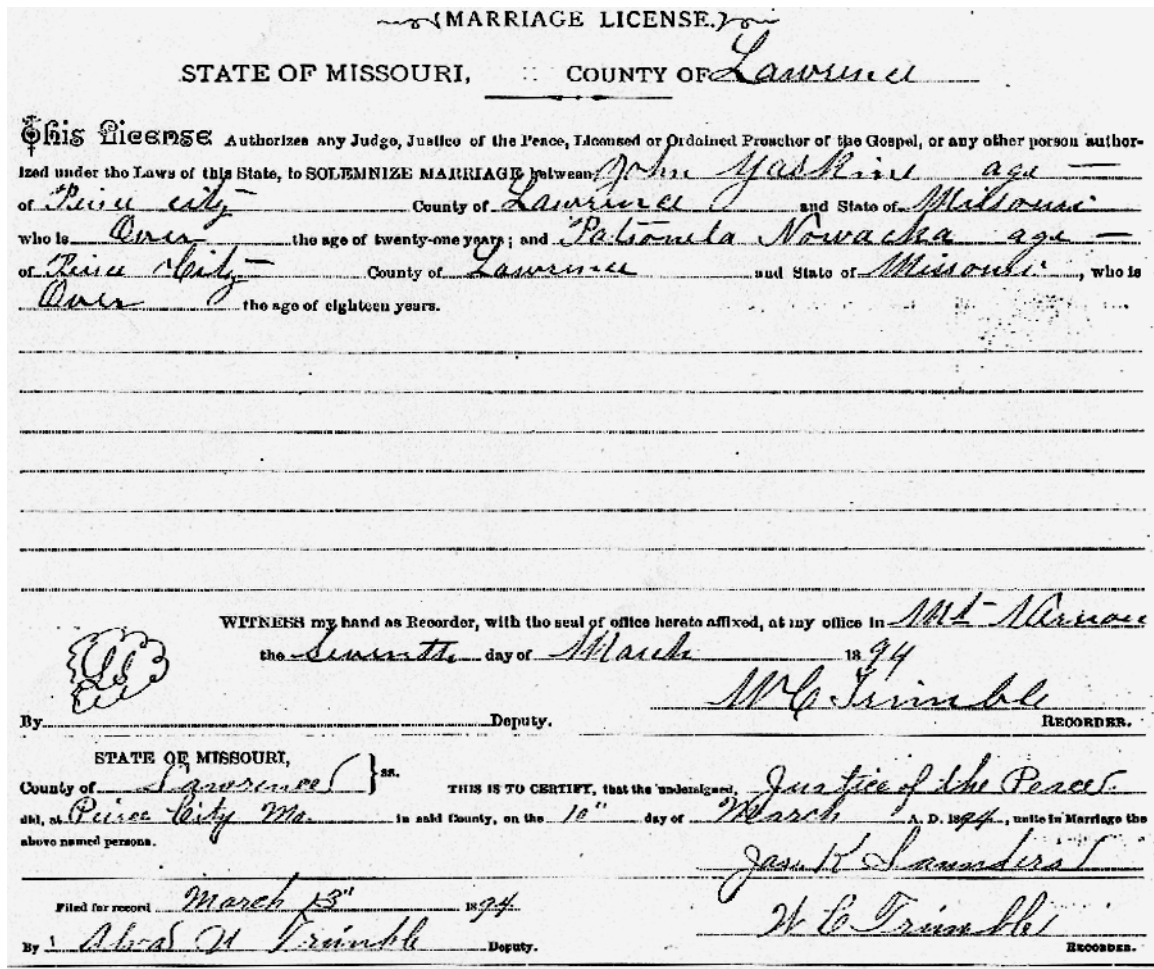 MARRIAGE LICENSE.
STATE OF MISSOURI, :: COUNTY OF Lawrence
This License Authorizes any Judge, Justice of the Peace, Licensed or Ordained Preacher of the Gospel, or any other person author-
ized under the Laws of this State, to SOLEMNIZE MARRIAGE between John Yaskine age —
of Peirce city County of Lawrence and State of Missouri
who is Over the age of twenty-one years; and Patronela Nowacka age —
of Peirce City County of Lawrence and State of Missouri, who is
Over the age of eighteen years.
WITNESS my hand as Recorder, with the seal of office hereto affixed, at my office in Mt Vernon
the Seventh day of March 1894
W C Trimble
By Deputy. RECORDER.
STATE OF MISSOURI,
County of Lawrence } ss. THIS IS TO CERTIFY, that the undersigned, Justice of the Peace
did, at Peirce City Mo. in said County, on the 10" day of March A. D. 1894, unite in Marriage the
above named persons.
Jas. K Saunders
Filed for record March 13" 1894
W C Trimble
By Trimble Deputy. RECORDER.